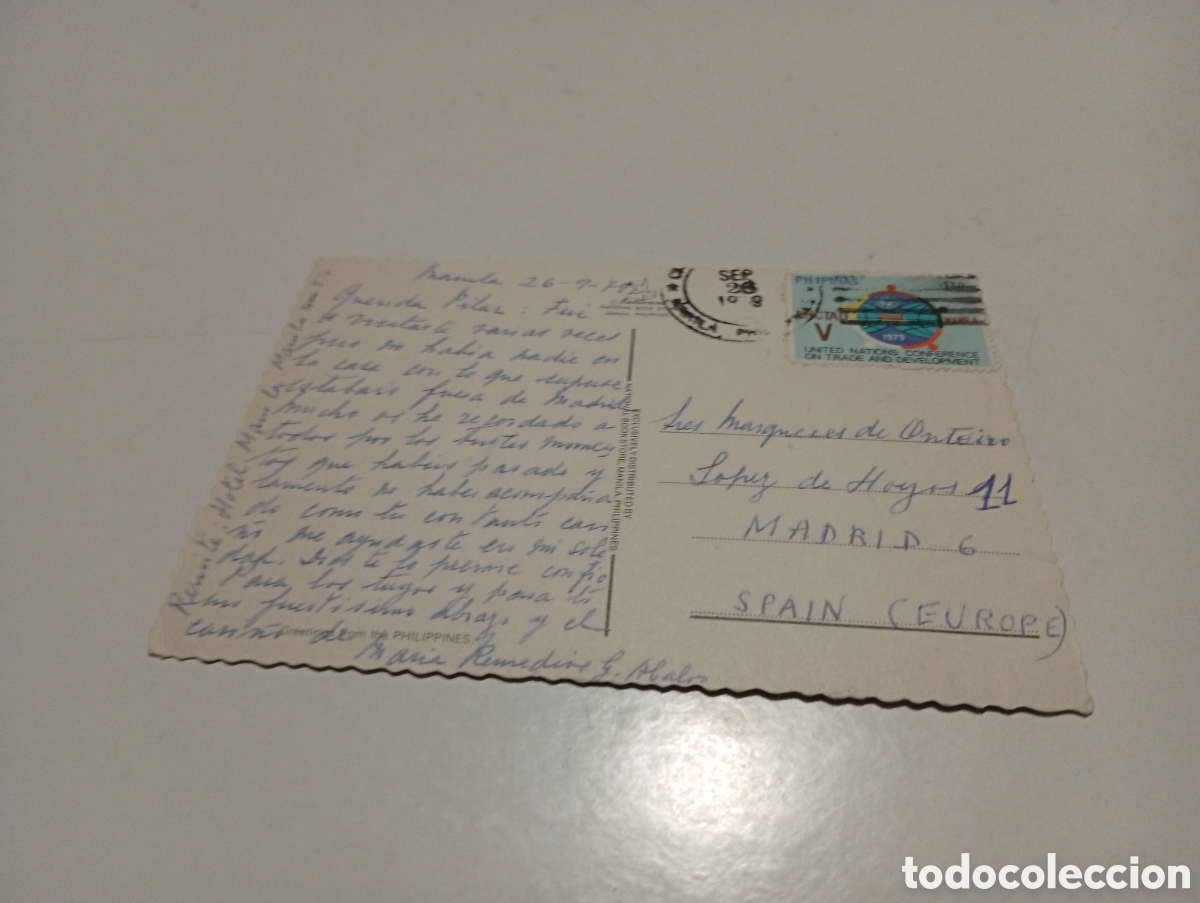 Manila 26-9-79
Querida Pilar: Fui
a visitaste varias veces
pero no había nadie en
la casa con lo que supuse
estabais fuera de Madrid
mucho os he recordado a
todos por los tristes momen
tos que habeis pasado y
lamento no haber acompaña
do como tu con tanto cari
ño me ayudaste en mi sole
dad. Dios te lo premie confio
Para los tuyos y para ti
un fuertisimo abrazo y el
cariño de
Maria Remedios G. Abalos
Greetings from the PHILIPPINES
Remite: Hotel Manila Manila
EXCLUSIVELY DISTRIBUTED BY
NATIONAL BOOK STORE, MANILA, PHILIPPINES
SEP
MANILA
PILIPINAS
UNCTAD
V
1979
MANILA
UNITED NATIONS CONFERENCE
ON TRADE AND DEVELOPMENT
Sres Marqueses de Onteiro
Lopez de Hoyos 11
MADRID 6
SPAIN (EUROPE)
todocoleccion